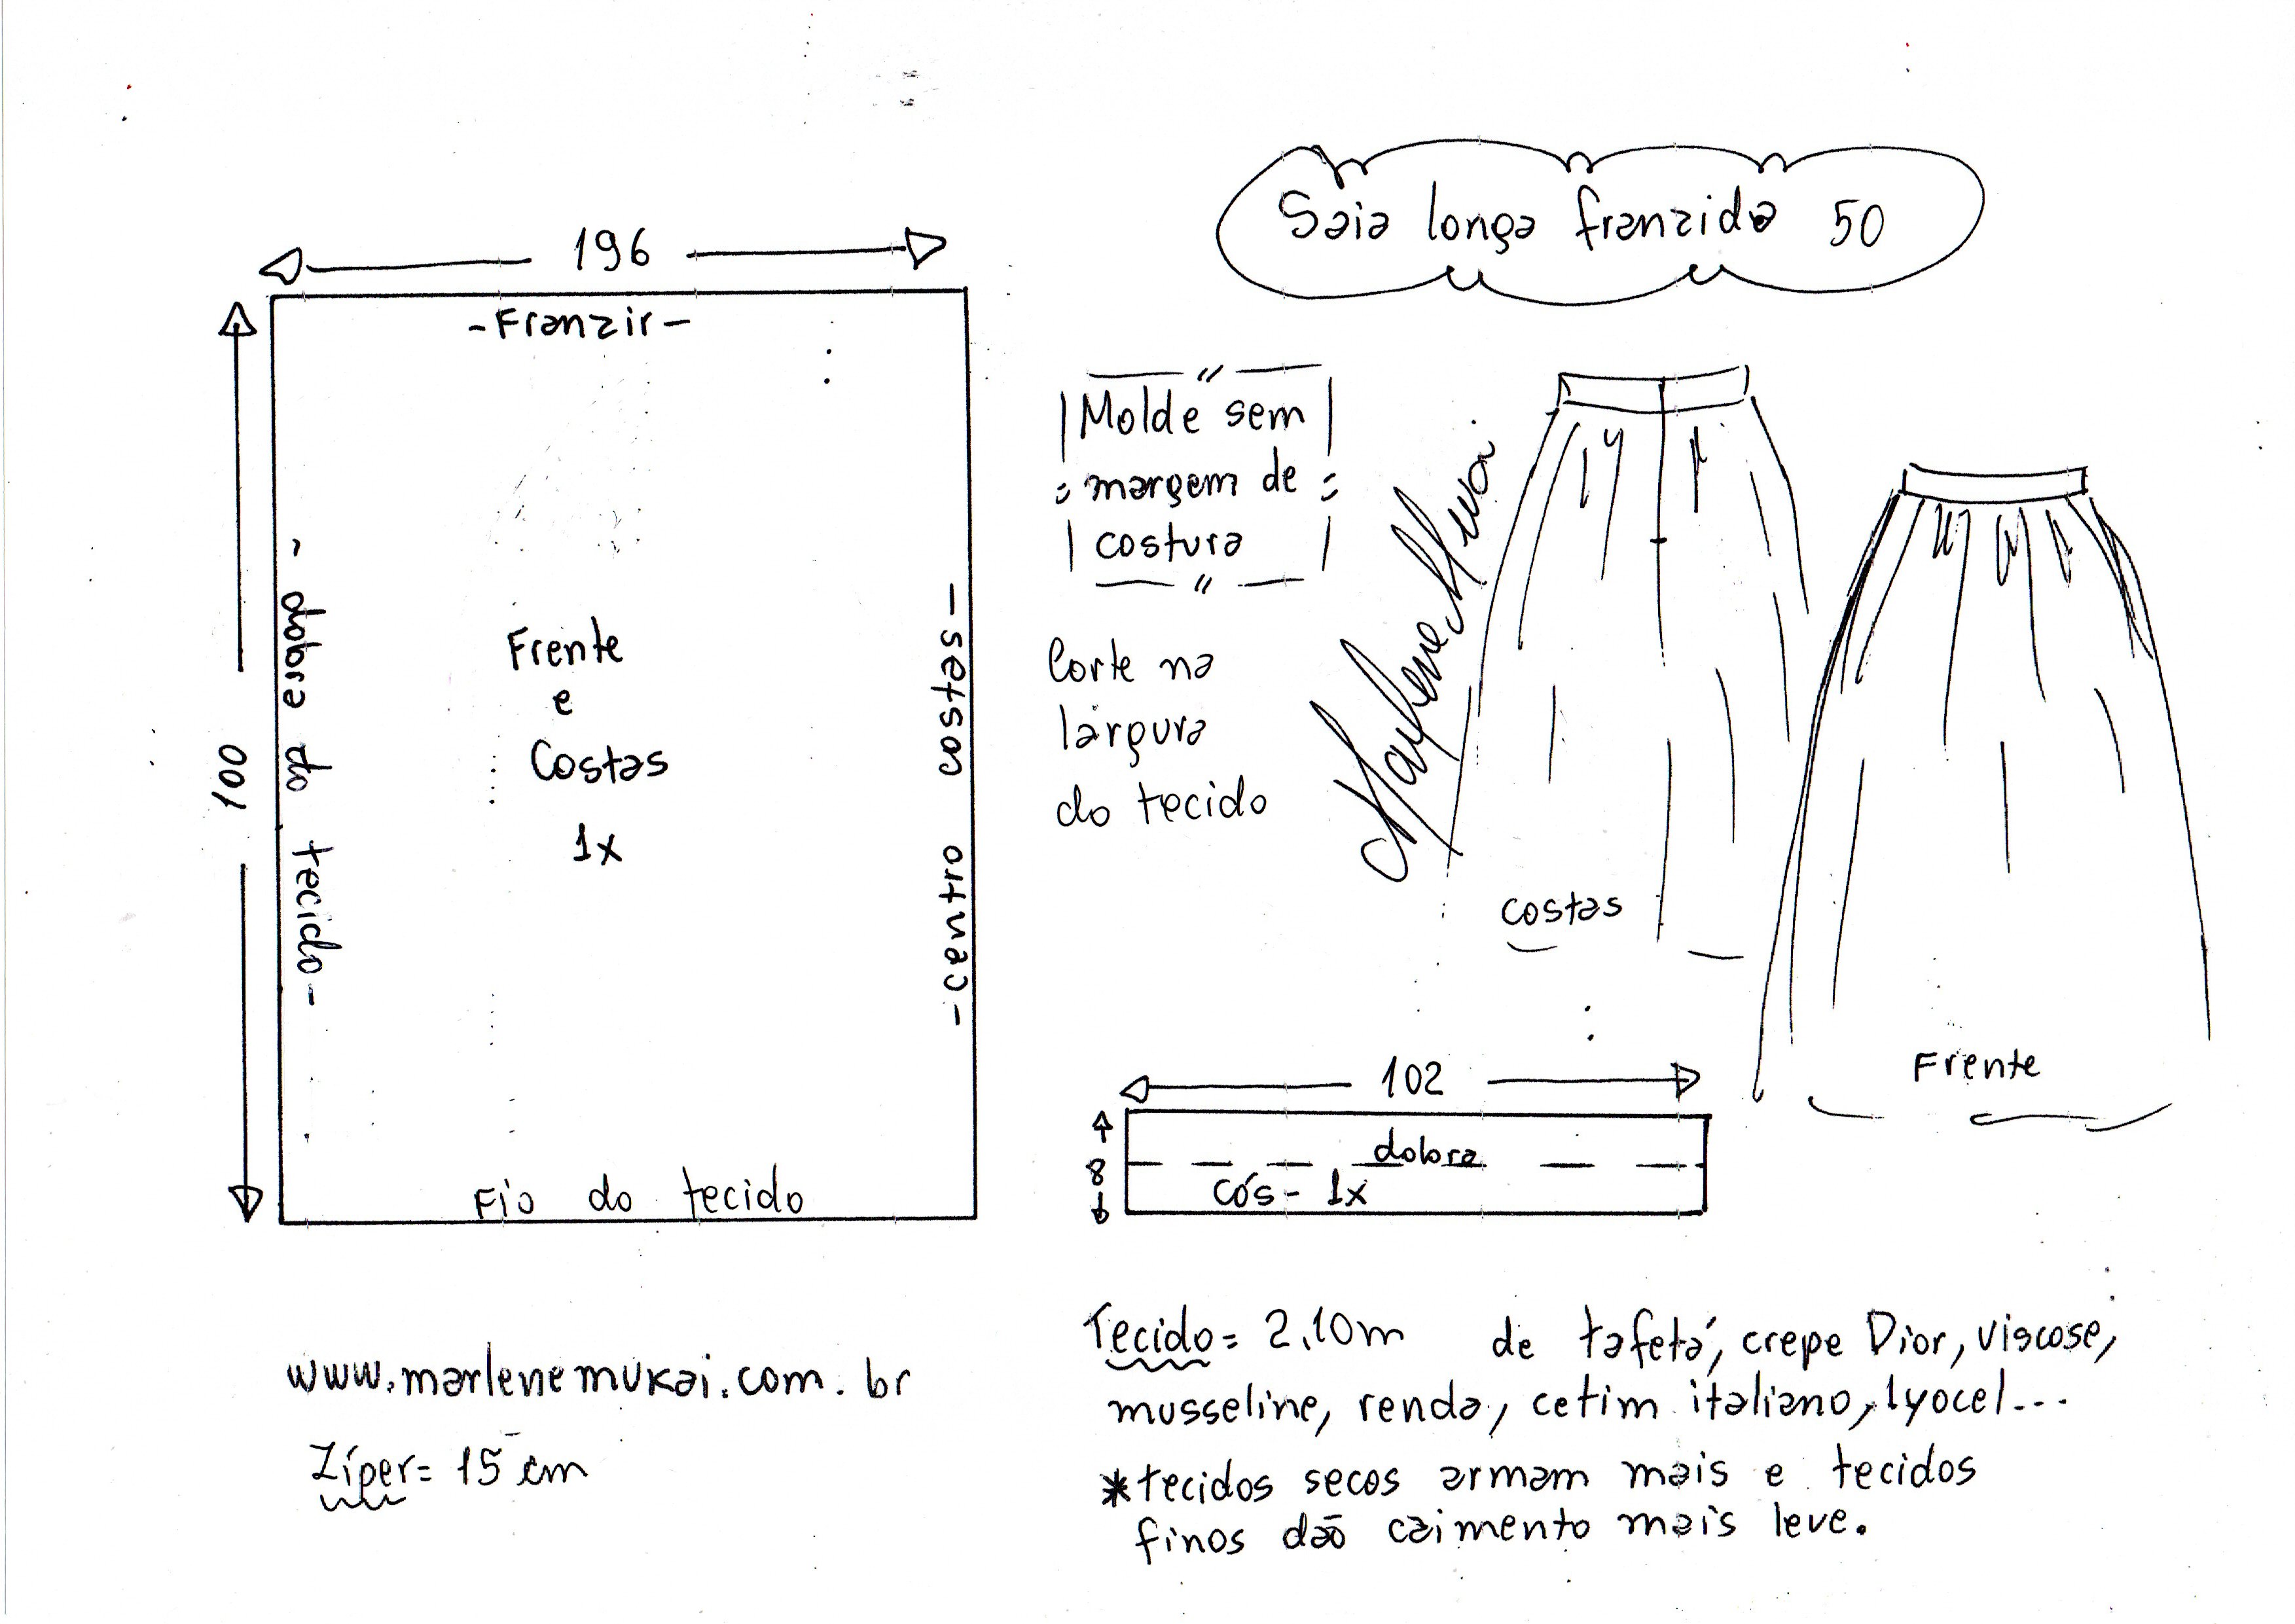 Saia longa franzida 50
196
-Franzir-
100
- dobra do tecido-
Frente
e
Costas
1x
-centro costas-
Fio do tecido
Molde sem
margem de
costura
Corte na
largura
do tecido
Marlene Mukai
costas
Frente
102
8
dobra
cós- 1x
www.marlenemukai.com.br
Zíper= 15 cm
Tecido= 2.10m de tafetá, crepe Dior, viscose,
musseline, renda, cetim italiano, lyocel...
*tecidos secos armam mais e tecidos
finos dão caimento mais leve.